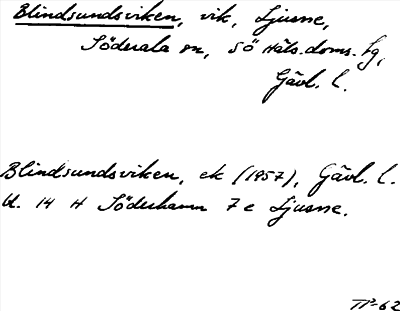 Blindsundsviken, vik, Ljusne,
Söderala sn, Sö Häls. doms. fg,
Gävl. l.
Blindsundsviken, ek (1957), Gävl. l.
bl. 14 H Söderhamn 7 e Ljusne.
-62